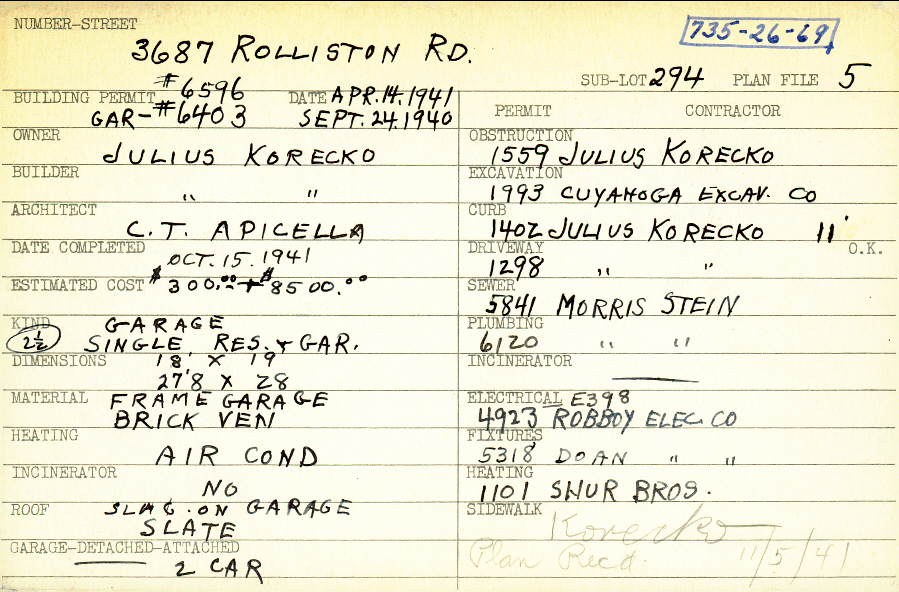 NUMBER-STREET
735-26-69
3687 ROLLISTON RD.
SUB-LOT 294 PLAN FILE 5
BUILDING PERMIT #6596 DATE APR. 14. 1941
GAR-#6403 SEPT. 24. 1940
OWNER
JULIUS KORECKO
BUILDER
" "
ARCHITECT
C.T. APICELLA
DATE COMPLETED
OCT. 15. 1941
ESTIMATED COST $300.00 + $8500.00
KIND GARAGE
2½ SINGLE RES. & GAR.
DIMENSIONS 18' X 19
27'8 X 28
MATERIAL FRAME GARAGE
BRICK VEN
HEATING
AIR COND
INCINERATOR
NO
ROOF SLAG. ON GARAGE
SLATE
GARAGE-DETACHED-ATTACHED
2 CAR
PERMIT CONTRACTOR
OBSTRUCTION
1559 JULIUS KORECKO
EXCAVATION
1993 CUYAHOGA EXCAV. CO
CURB
1402 JULIUS KORECKO 11'
DRIVEWAY O.K.
1298 " "
SEWER
5841 MORRIS STEIN
PLUMBING
6120 " "
INCINERATOR
ELECTRICAL E398
4923 ROBBOY ELEC CO
FIXTURES
5318 DOAN " "
HEATING
1101 SHUR BROS.
SIDEWALK
Korecko
Plan Recd. 11/5/41